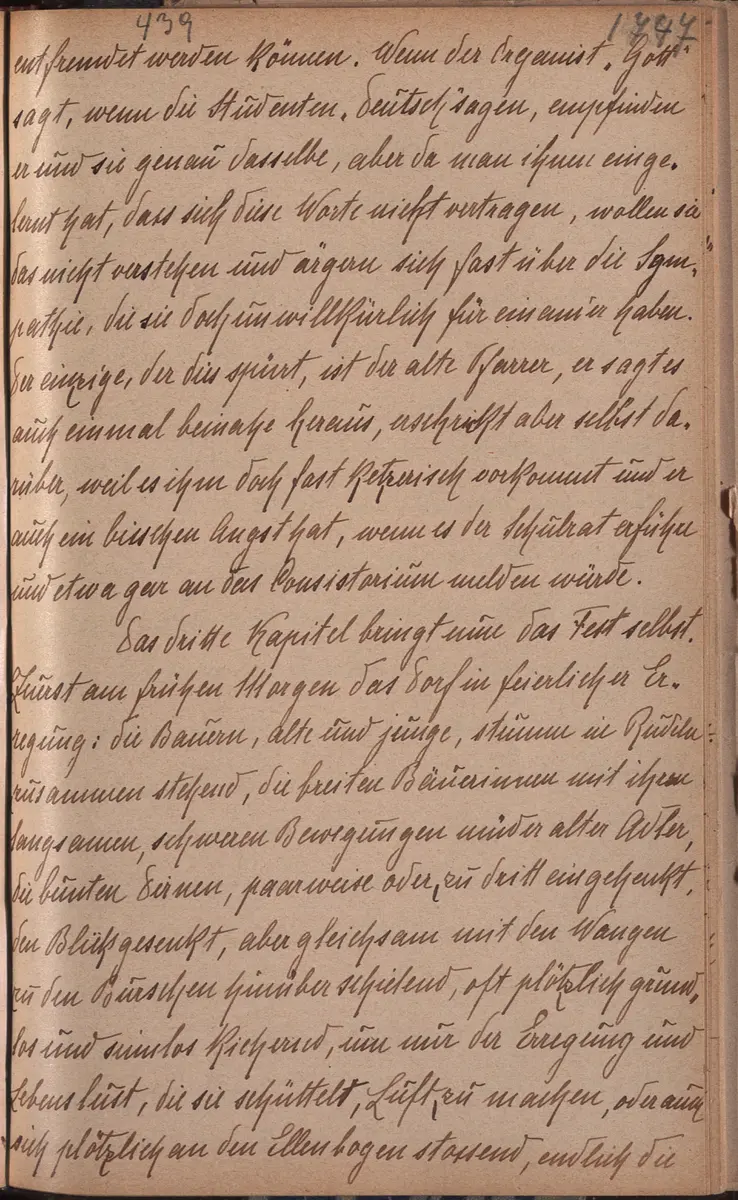 439 1747
entfremdet werden können. Wenn der Organist „Gott“
sagt, wenn die Studenten „Deutsch“ sagen, empfinden
er und sie genau dasselbe, aber da man ihnen einge-
lernt hat, dass sich diese Worte nicht vertragen, wollen sie
das nicht verstehen und ärgern sich fast über die Sym-
pathie, die sie doch unwillkürlich für einanier haben.
Der einzige, der dies spürt, ist der alte Pfarrer, er sagt es
auch einmal beinahe heraus, erschrikt aber selbst da-
rüber, weil es ihm doch fast ketzerisch vorkommt und er
auch ein bischen Angst hat, wenn es der Schulrat erführe
und etwa gar an das Consistorium melden würde.
Das dritte Kapitel bringt nun das Fest selbst.
Zuerst am frühen Morgen das Dorf in feierlicher Er-
regung: die Bauern, alte und junge, stumm in Rudeln
zusammen stehend, die breiten Bäuerinnen mit ihren
langsamen, schweren Bewegungen müder alter Adler,
die bunten Dirnen, paarweise oder zu dritt eingehenkt,
den Blick gesenkt, aber gleichsam mit den Wangen
zu den Burschen hinüber schielend, oft plötzlich grund-
los und sinnlos kichernd, um nur der Erregung und
Lebenslust, die sie schüttelt, Luft zu machen, oder auch
sich plötzlich an den Ellenbogen stossend, endlich die